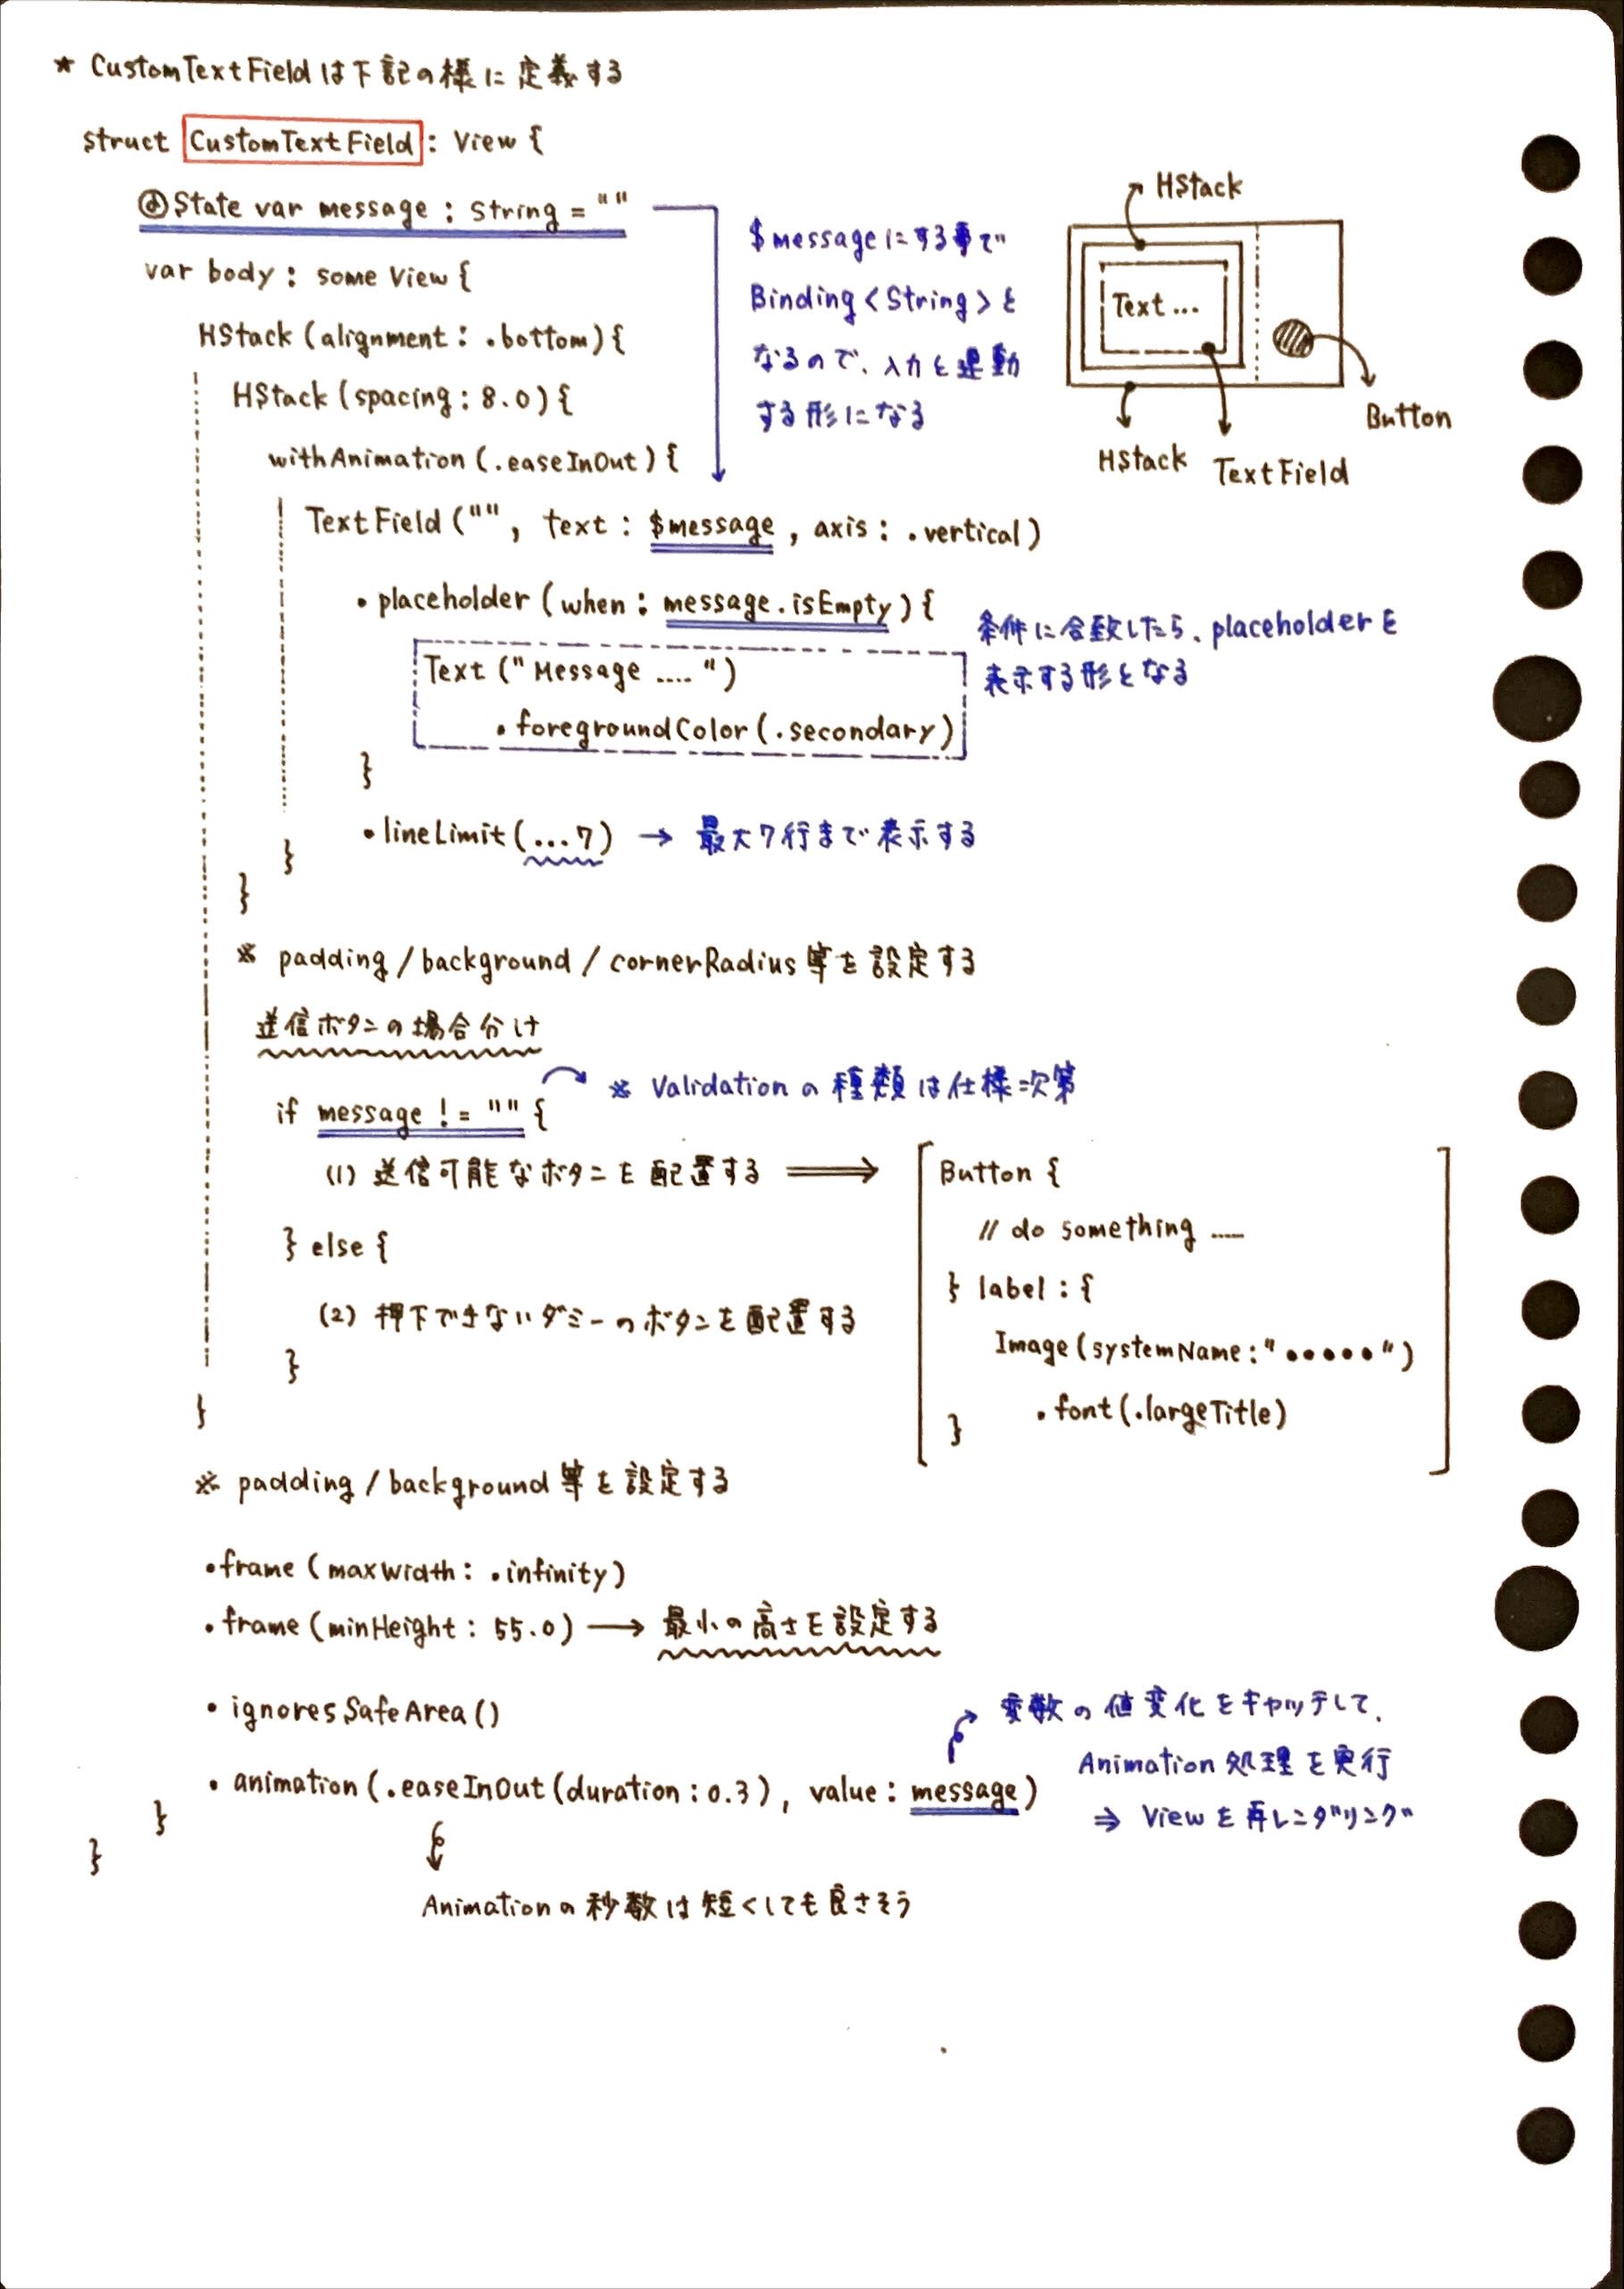 ★ CustomTextFieldは下記の様に定義する
struct CustomTextField : View {
@State var message : String = ""
$messageにする事で
Binding<String>と
なるので、入力と連動
する形になる
HStack
Text ...
Button
HStack
TextField
var body : some View {
HStack (alignment : .bottom) {
HStack (spacing : 8.0) {
withAnimation (.easeInOut) {
TextField ("", text : $message , axis : .vertical)
.placeholder (when : message.isEmpty) {
条件に合致したら、placeholderを
表示する形となる
Text ("Message ....")
.foregroundColor (.secondary)
}
.lineLimit (...7) → 最大7行まで表示する
}
}
※ padding / background / cornerRadius 等を設定する
送信ボタンの場合分け
※ Validationの種類は仕様次第
if message != "" {
(1) 送信可能なボタンを配置する ⇒
} else {
(2) 押下できないダミーのボタンを配置する
}
}
Button {
// do something .....
} label : {
Image (systemName : "●●●●●")
.font (.largeTitle)
}
※ padding / background 等を設定する
.frame (maxWidth : .infinity)
.frame (minHeight : 55.0) → 最小の高さを設定する
.ignoresSafeArea ()
.animation (.easeInOut (duration : 0.3), value : message)
変数の値変化をキャッチして、
Animation処理を実行
⇒ Viewを再レンダリング
}
}
Animationの秒数は短くしても良さそう